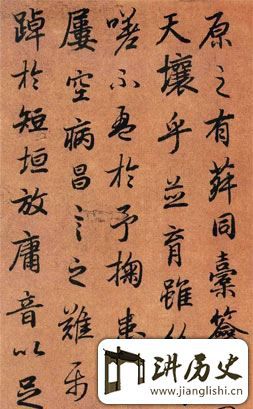 原之有菽同橐籥
天壤乎並育雖紛
嗟不盈於予掬患
屢空病昌言之難
踔於短垣放庸音以足
讲历史
www.jianglishi.cn